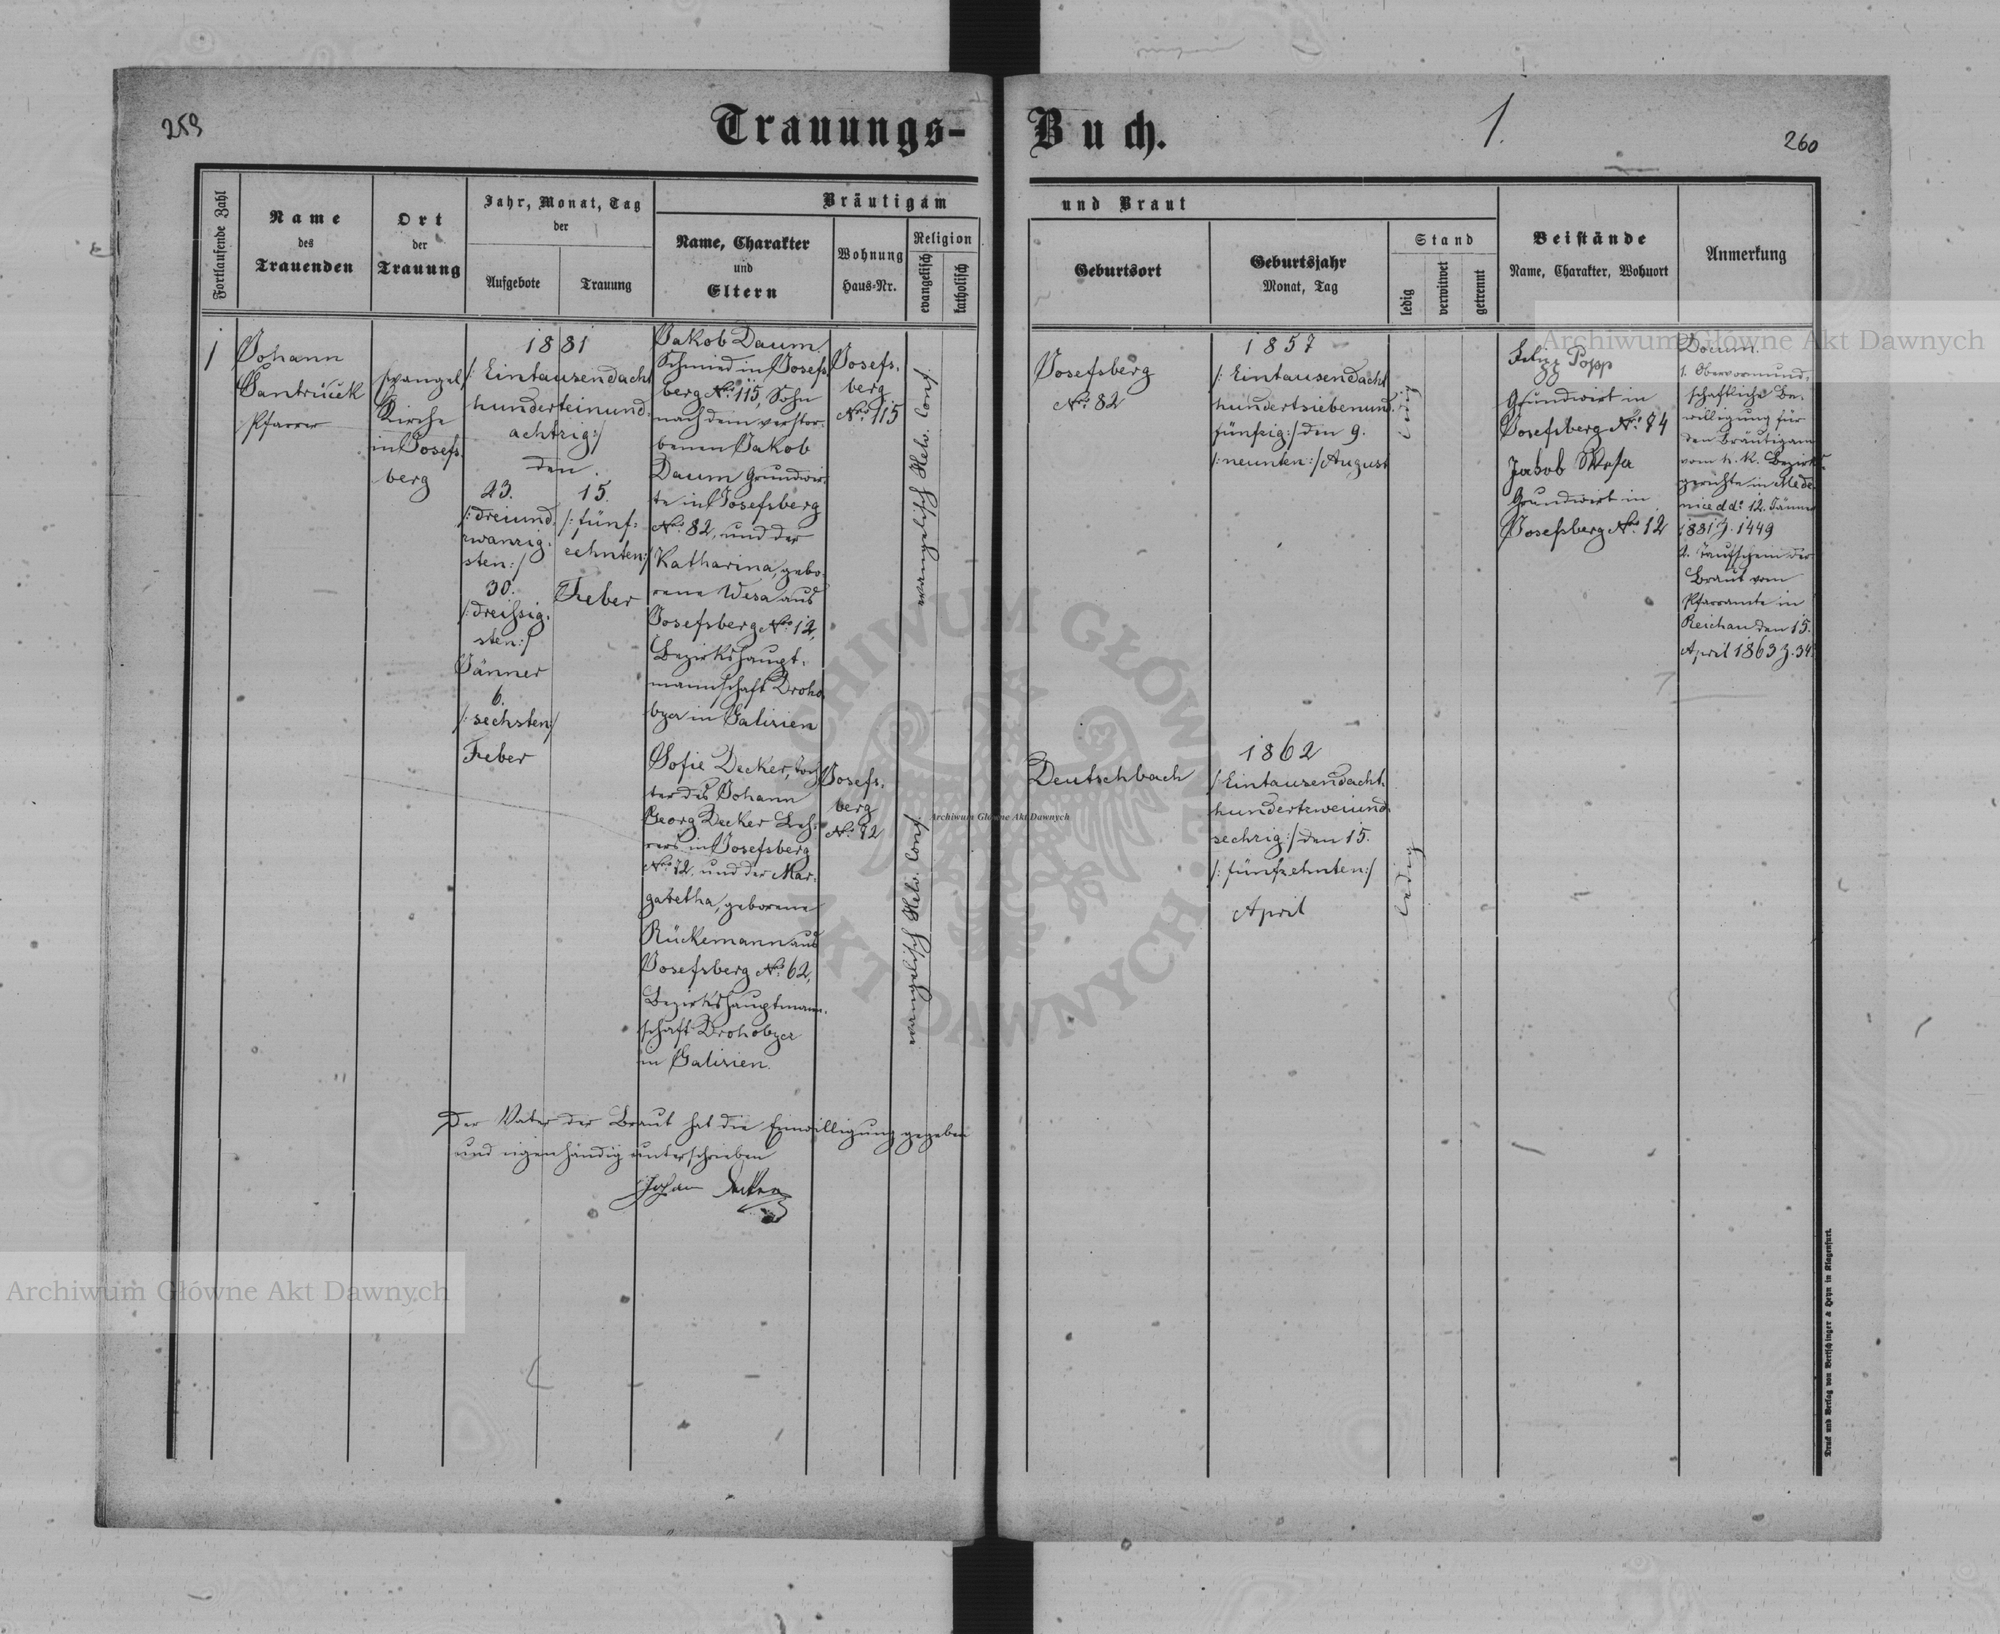 259
Trauungs-Buch.
1.
260
Fortlaufende Zahl
Name
des
Trauenden
Ort
der
Trauung
Jahr, Monat, Tag
der
Aufgebote
Trauung
Bräutigam
und Braut
Name, Charakter
und
Eltern
Wohnung
Haus-Nr.
Religion
evangelisch
katholisch
Geburtsort
Geburtsjahr
Monat, Tag
Stand
ledig
verwitwet
getrennt
Beistände
Name, Charakter, Wohnort
Anmerkung
1
Johann
Jantrücek
Pfarrer
Evangel.
Kirche
in Josefs
berg
1881
/: Eintausendacht
hunderteinund-
achtzig:/
den
23.
/:dreiund-
zwanzig-
sten:/
30.
/:dreissig-
sten:/
Jänner
6.
/: sechsten:/
Feber
15.
/: fünf-
zehnten:/
Feber
Jakob Daum,
Schmied in Josefs
berg No. 115, Sohn
nach dem verstor-
benen Jakob
Daum Grundwir-
te in Josefsberg
No. 82, und der
Katharina, gebo-
rene Wesa aus
Josefsberg No. 12,
Bezirkshaupt-
mannschaft Droho-
bycz in Galizien
Josefs-
berg
No. 115
evangelisch Helv. Conf.
Josefsberg
No. 82
1857
/: Eintausendacht
hundertsiebenund-
fünfzig:/ den 9.
/:neunten:/ August
ledig
Popp
Grundwirt in
Josefsberg No. 84
Jakob Wesa
Grundwirt in
Josefsberg No. 12
Docum.
1. Obervormund-
schaftliche Be-
willigung für
den Bräutigam
vom k. k. Bezirks-
gerichte in Mede-
nice ddo. 12. Jänner
1881 Z. 1449
2. Taufschein der
Braut vom
Pfarramte in
Reichau den 15.
April 1863 Z. 34.
Sofie Decker, Toch
ter des Johann
Georg Decker Leh-
rers in Josefsberg
No. 72, und der Mar-
garetha, geborene
Rückemann aus
Josefsberg No. 62,
Bezirkshauptmann-
schaft Drohobycz
in Galizien.
Josefs-
berg
No. 72
evangelisch Helv. Conf.
Deutschbach
1862
/: Eintausendacht-
hundertzweiund-
sechzig:/ den 15.
/: fünfzehnten:/
April
ledig
Der Vater der Braut hat die Einwilligung gegeben
und eigenhändig unterschrieben
Johann
Druck und Verlag von Bertschinger & Heyn in Klagenfurt.
Archiwum Główne Akt Dawnych
Archiwum Główne Akt Dawnych
Archiwum Główne Akt Dawnych
ARCHIWUM GŁÓWNE AKT DAWNYCH